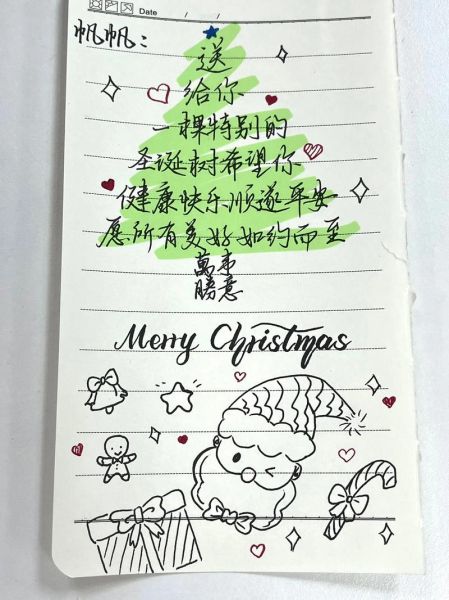 Date / /
帆帆：
送
给你
一棵特别的
圣诞树希望你
健康快乐顺遂平安
愿所有美好如约而至
萬事
勝意
Merry Christmas